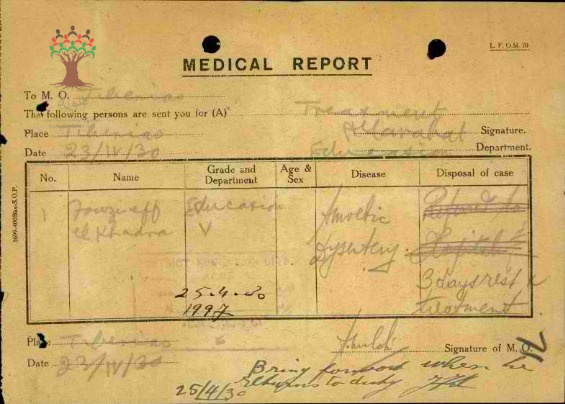 L. F. O.M. 70
MEDICAL REPORT
To M. O. Tiberias
The following persons are sent you for (A) Treatment
Place Tiberias Signature.
Date 23/IV/30 Education Department.
No. Name Grade and Department Age & Sex Disease Disposal of case
1 Fawzi eff el Khadra Education V Amoebic Dysentery. 3 days rest x treatment
25.4.30
1997
Place Tiberias Signature of M. O.
Date 23/IV/30
Bring forward when he
25/4/30 returns to duty